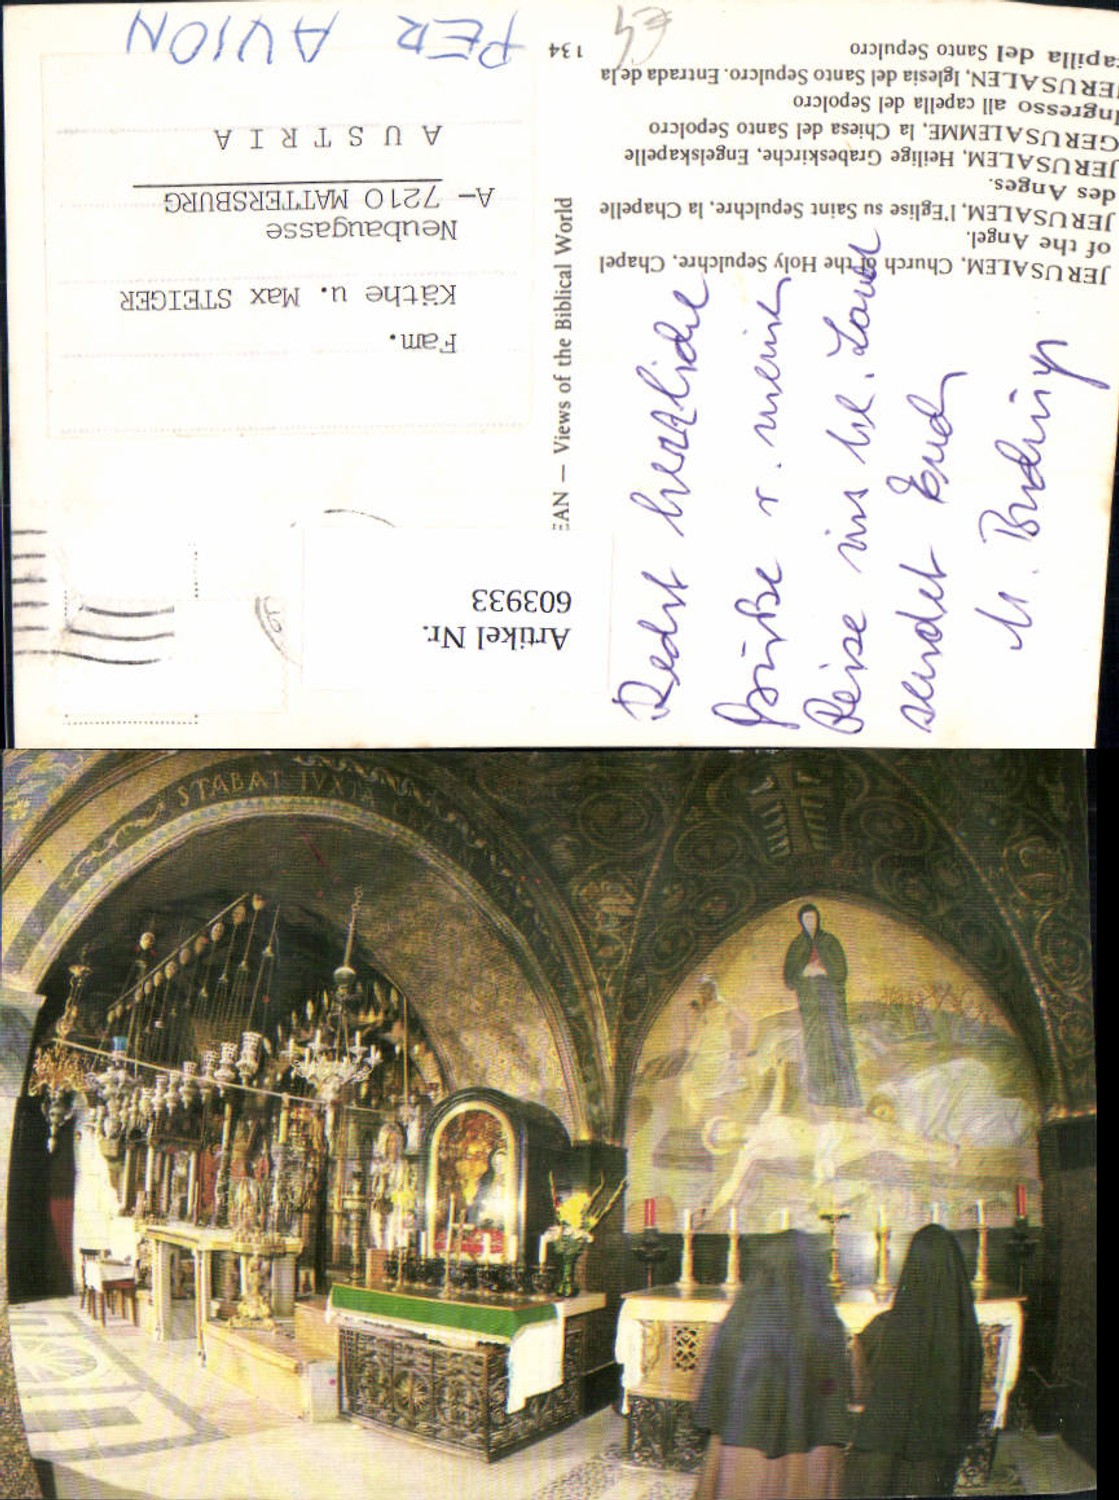 JERUSALEM, Church of the Holy Sepulchre, Chapel
of the Angel.
JERUSALEM, l'Eglise su Saint Sepulchre, la Chapelle
des Anges.
JERUSALEM, Heilige Grabeskirche, Engelskapelle
GERUSALEMME, la Chiesa del Santo Sepolcro
Ingresso all capella del Sepolcro
JERUSALEN, Iglesia del Santo Sepulcro. Entrada de la
capilla del Santo Sepulcro
134
PER AVION
EAN — Views of the Biblical World
Recht herzliche
Grüße v. meiner
Reise ins hl. Land
sendet Euch
Artikel Nr.
603933
Fam.
Käthe u. Max STEIGER
Neubaugasse
A- 7210 MATTERSBURG
A U S T R I A
STABAT IVXTA